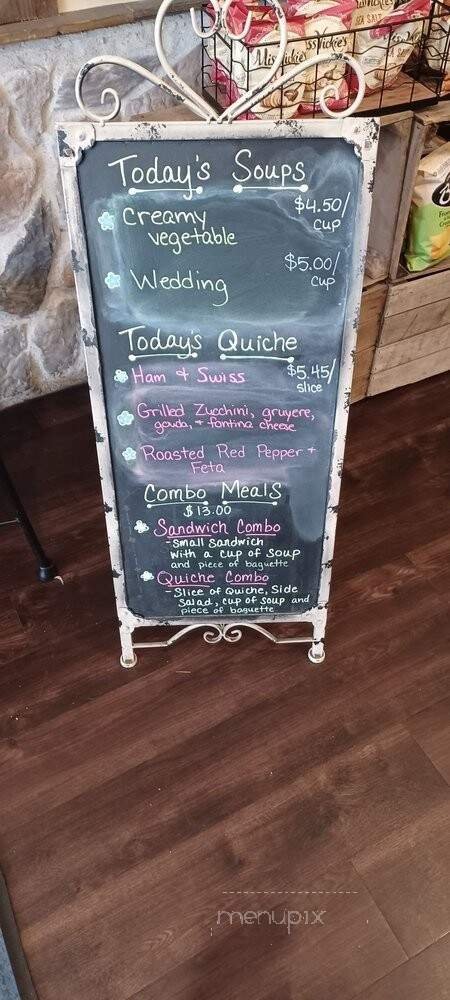 MissVickie's
SEA SALT
Today's Soups
Creamy vegetable
$4.50/
cup
Wedding
$5.00/
cup
Today's Quiche
Ham + Swiss
$5.45/
slice
Grilled Zucchini, gruyere,
gouda, + fontina cheese
Roasted Red Pepper +
Feta
Combo Meals
$13.00
Sandwich Combo
-small sandwich
with a cup of soup
and piece of baguette
Quiche Combo
-Slice of Quiche, Side
Salad, cup of soup and
piece of baguette
menupix